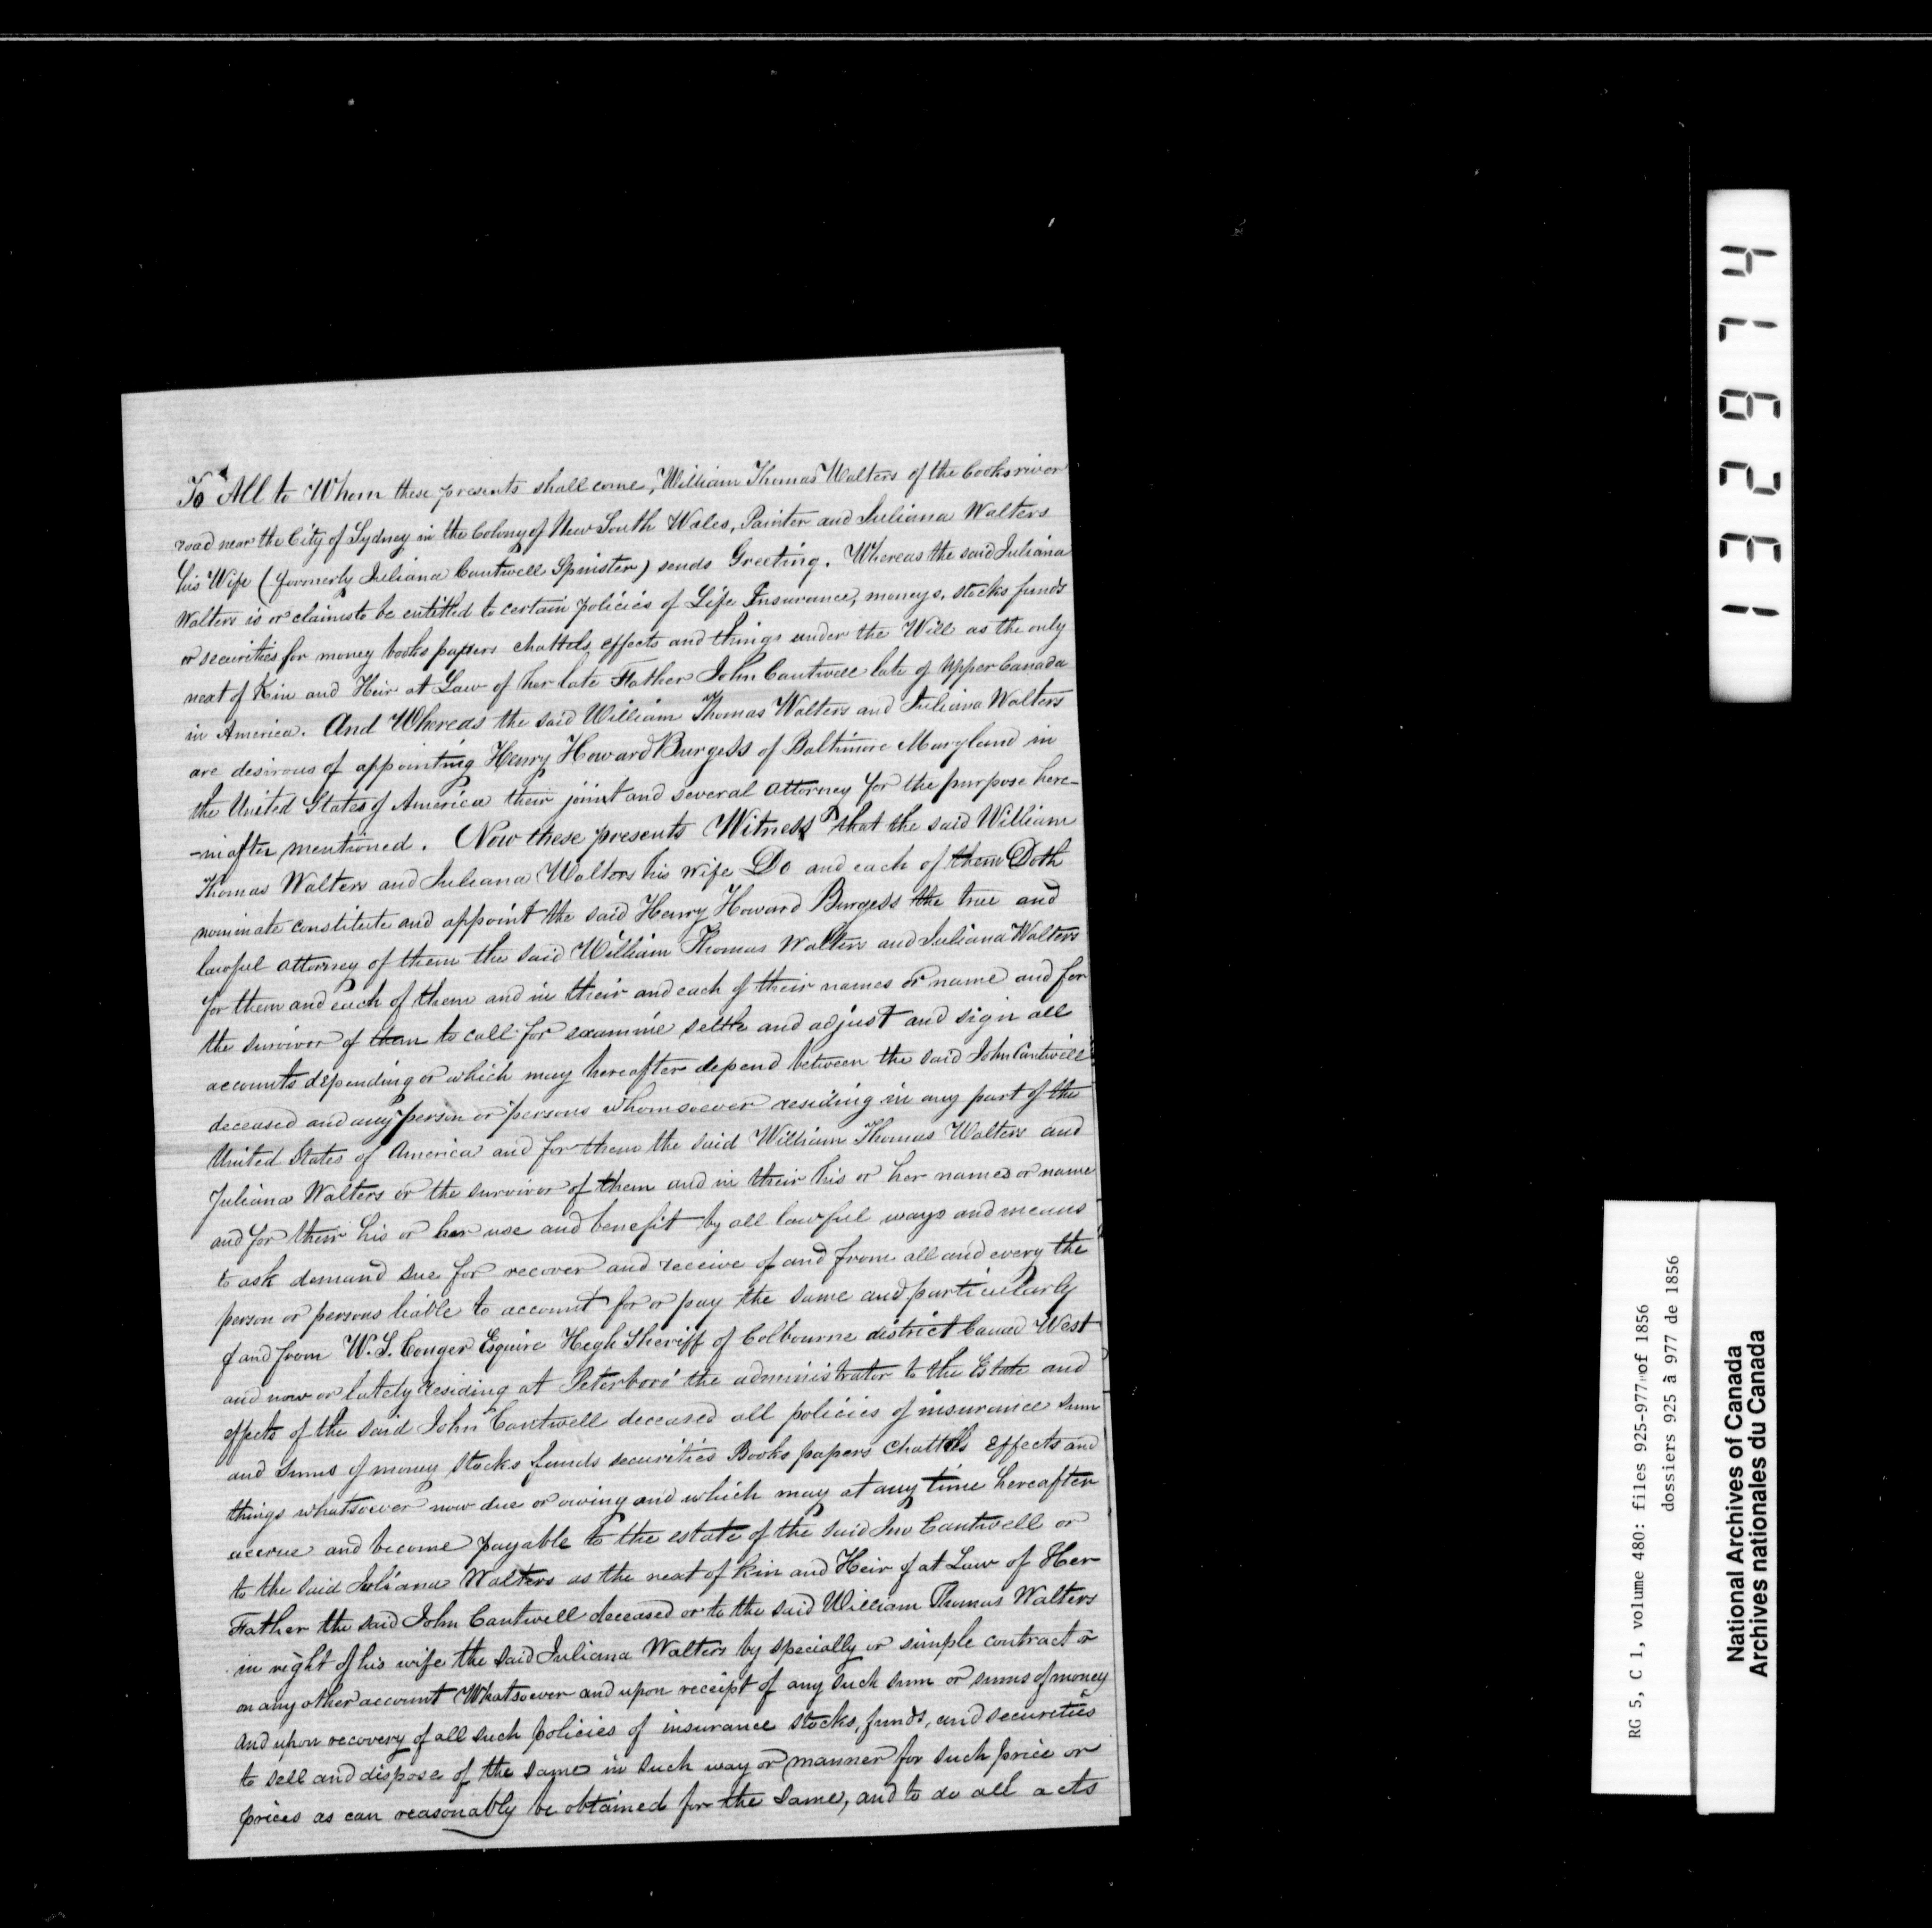 To All to Whom these presents shall come, William Thomas Walters of the Cooks river
road near the City of Sydney in the Colony of New South Wales, Painter and Juliana Walters
his Wife (formerly Juliana Cantwell Spinster) sends Greeting. Whereas the said Juliana
Walters is or claims to be entitled to certain policies of Life Insurance, moneys, stocks funds
or securities for money books papers chattels effects and things under the Will as the only
next of Kin and Heir at Law of her late Father John Cantwell late of Upper Canada
in America. And Whereas the said William Thomas Walters and Juliana Walters
are desirous of appointing Henry Howard Burgess of Baltimore Maryland in
the United States of America their joint and several attorney for the purpose here-
-inafter mentioned. Now these presents Witness that the said William
Thomas Walters and Juliana Walters his wife Do and each of them Doth
nominate constitute and appoint the said Henry Howard Burgess the true and
lawful attorney of them the said William Thomas Walters and Juliana Walters
for them and each of them and in their and each of their names or name and for
the survivor of them to call for examine settle and adjust and sign all
accounts depending or which may hereafter depend between the said John Cantwell
deceased and any person or persons whomsoever residing in any part of the
United States of America and for them the said William Thomas Walters and
Juliana Walters or the survivor of them and in their his or her names or name
and for their his or her use and benefit by all lawful ways and means
to ask demand sue for recover and receive of and from all and every the
person or persons liable to account for or pay the same and particularly
of and from W. S. Conger Esquire High Sheriff of Colbourne district Canad West
and now or lately residing at Peterboro' the administrator to the Estate and
effects of the said John Cantwell deceased all policies of insurance sum
and sums of money stocks funds securities Books papers chattels effects and
things whatsoever now due or owing and which may at any time hereafter
accrue and become payable to the estate of the said Jno Cantwell or
to the said Juliana Walters as the next of kin and Heir of at Law of Her
Father the said John Cantwell deceased or to the said William Thomas Walters
in right of his wife the said Juliana Walters by specially or simple contract or
on any other account Whatsoever and upon receipt of any such sum or sums of money
and upon recovery of all such policies of insurance stocks, funds, and securities
to sell and dispose of the same in such way or manner for such price or
prices as can reasonably be obtained for the same, and to do all acts
132974
RG 5, C 1, volume 480: files 925-977 of 1856
dossiers 925 à 977 de 1856
National Archives of Canada
Archives nationales du Canada